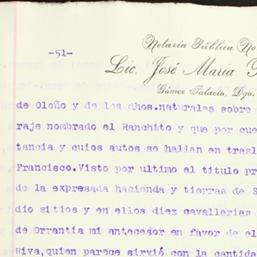 -51-
Notaria Pública No
Lic. José Maria
Gómez Palacio, Dgo.
de Oloño y de los dhos.naturales sobre
raje nombrado el Ranchito y que por cue
tancia y cuios autos se hallan en trasl
Francisco.Visto por ultimo el titulo pr
de la expresada hacienda y tierras de S
dio sitios y en ellos diez cavallerias
de Orrantia mi antecesor en favor de el
Riva,quien parece sirvió con la cantida